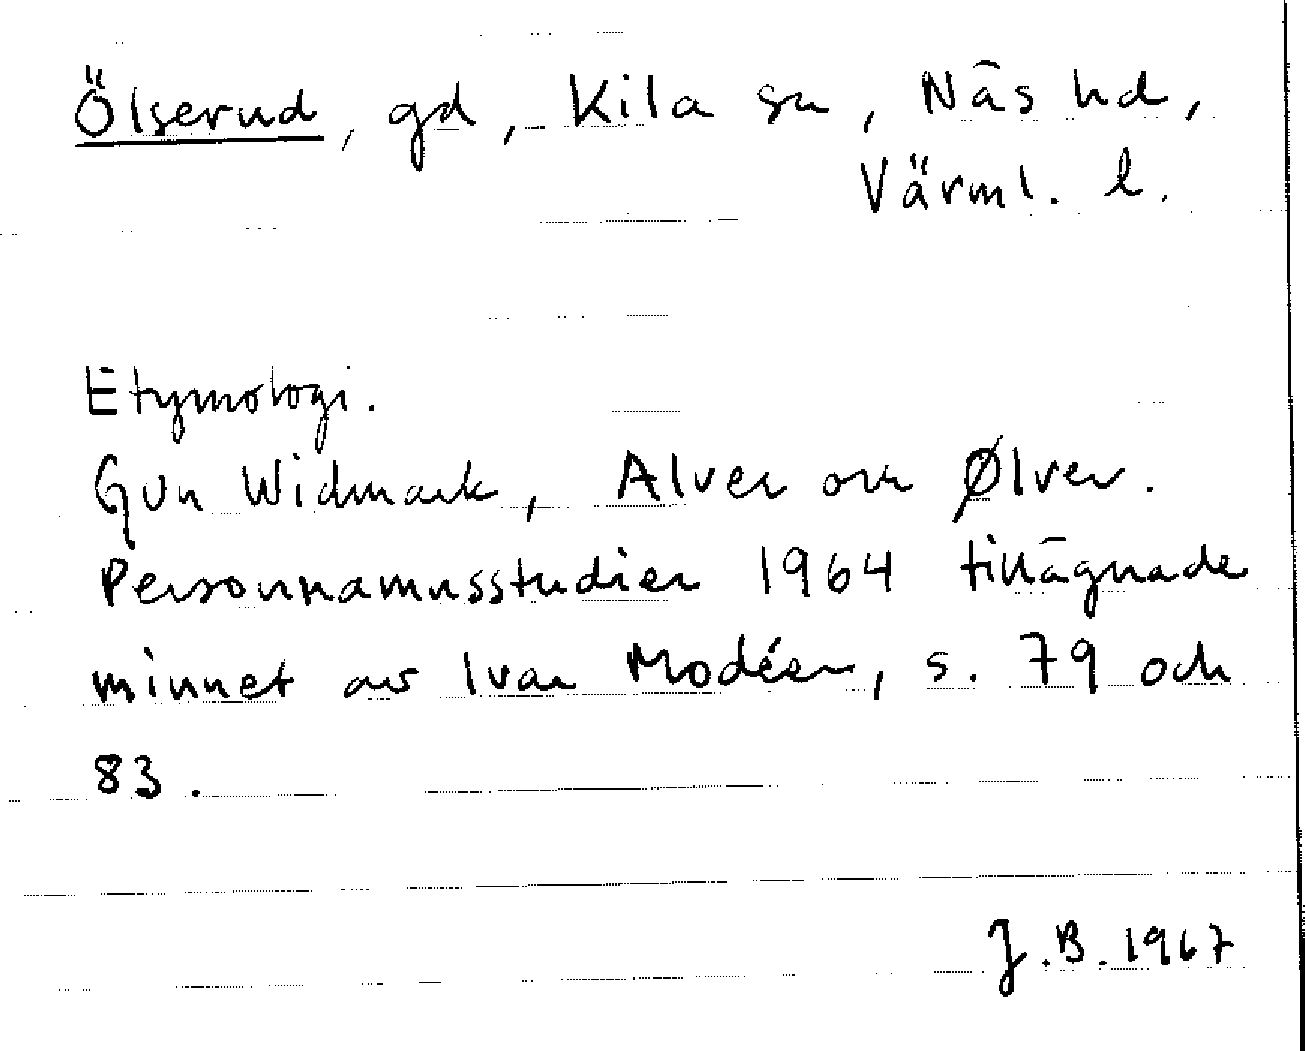 Ölserud, gd, Kila sn, Näs hd,
Värml. l.
Etymologi.
Gun Widmark, Alver om Ølver.
Personnamnsstudier 1964 tillägnade
minnet av Ivar Modéer, s. 79 och
83.
J.B. 1967